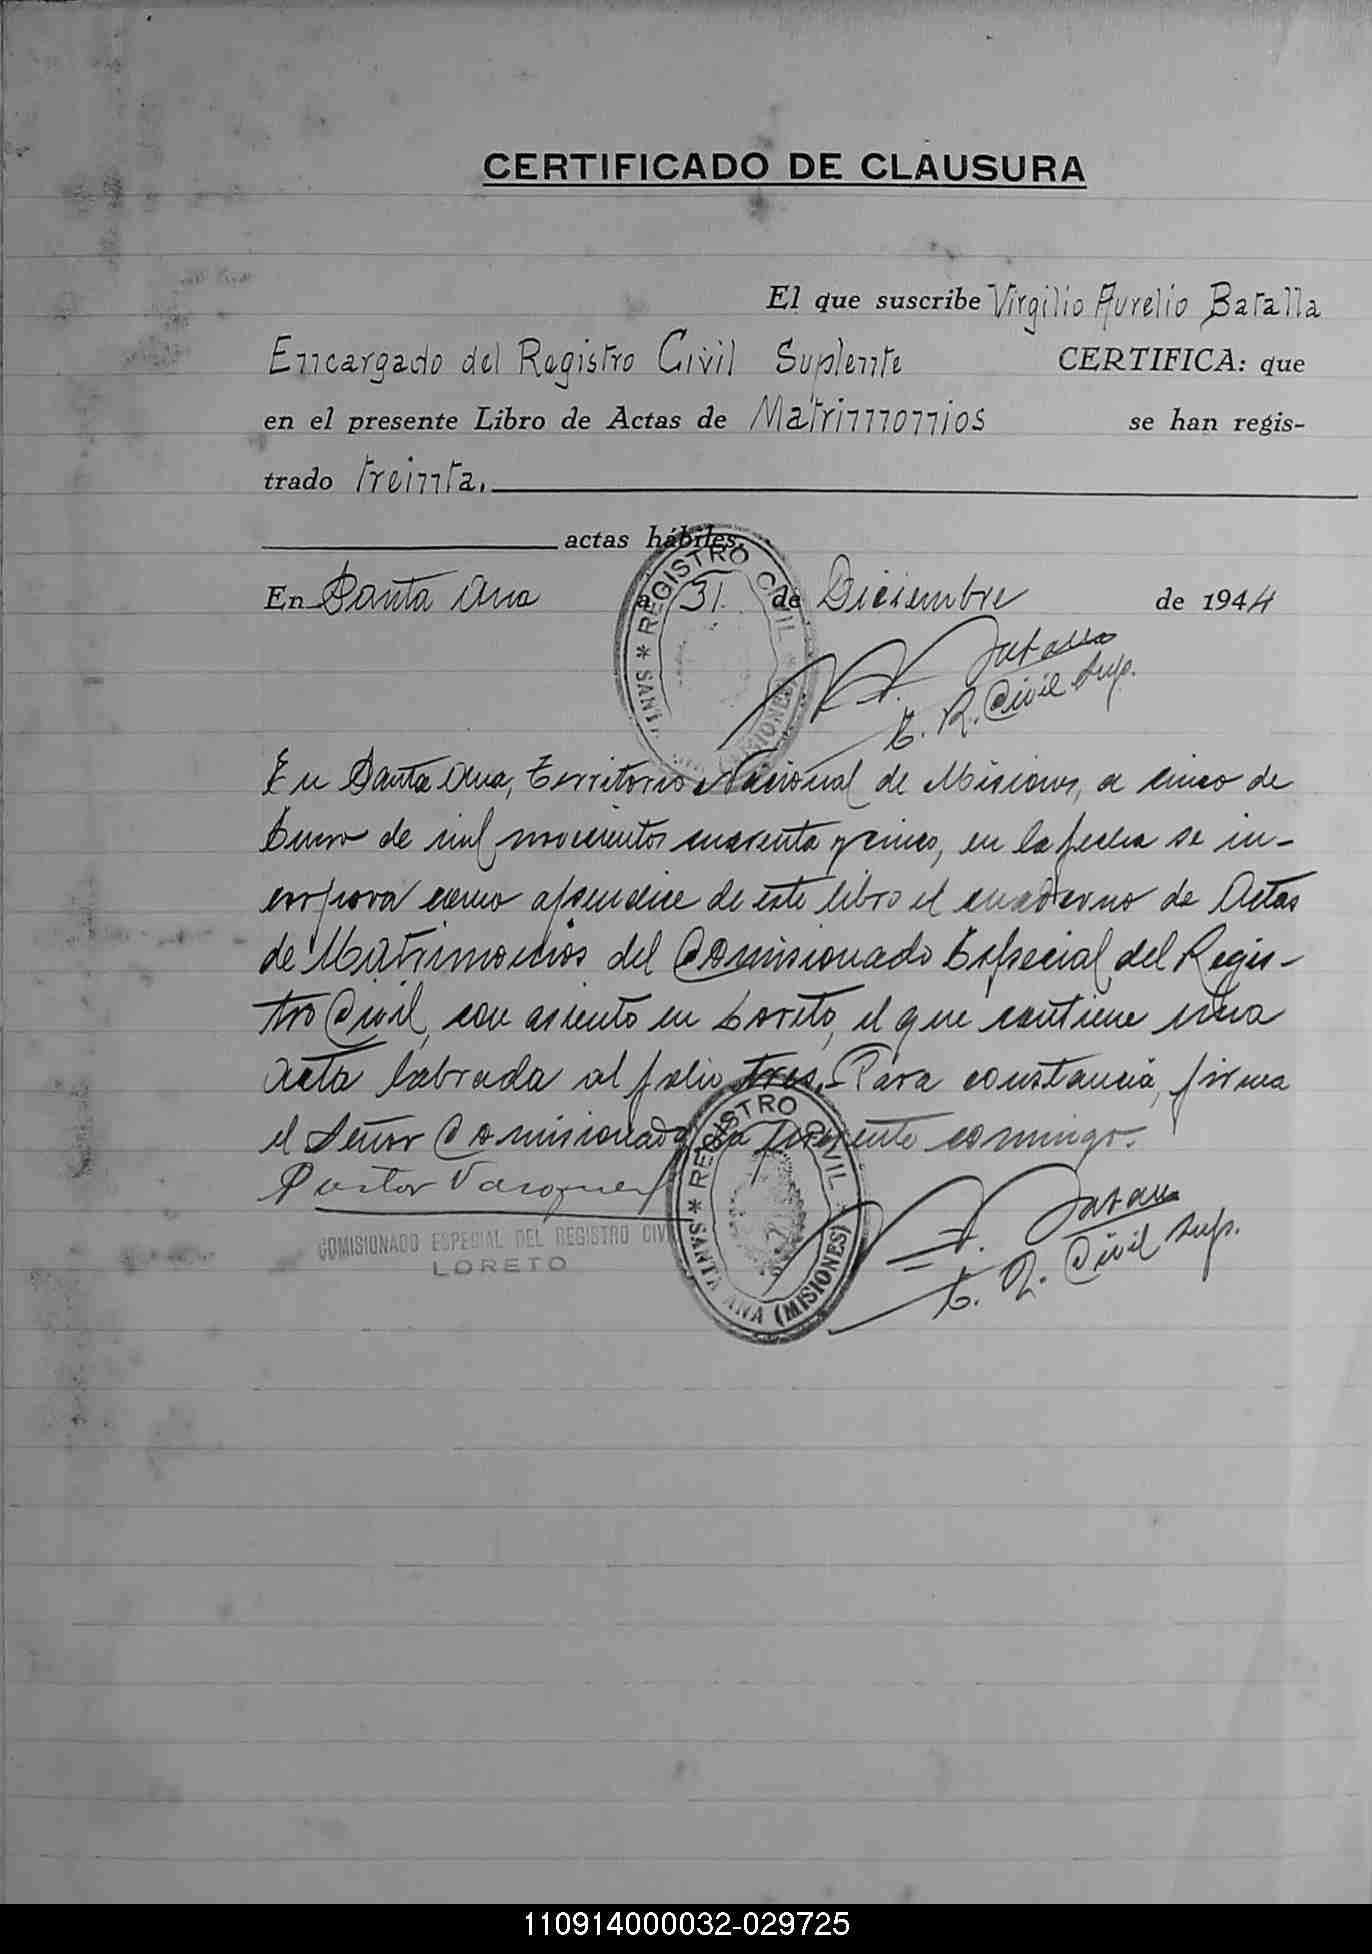 CERTIFICADO DE CLAUSURA
El que suscribe Virgilio Aurelio Batalla
Encargado del Registro Civil Suplente CERTIFICA: que
en el presente Libro de Actas de Matrimonios se han regis-
trado treinta.
actas hábiles.
En Santa Ana a 31 de Diciembre de 1944
REGISTRO CIVIL
SANTA (MISIONES)
V. A. Batalla
E. R. Civil Sup.
En Santa Ana, Territorio Nacional de Misiones, a cinco de
Enero de mil novecientos cuarenta y cinco, en la fecha se in-
corpora como apendice de este libro el cuaderno de Actas
de Matrimonios del Comisionado Especial del Regis-
tro Civil, con asiento en Loreto, el que contiene una
acta labrada al folio tres.- Para constancia, firma
el Señor Comisionado la presente conmigo.
Pastor Vasquez
COMISIONADO ESPECIAL DEL REGISTRO CIVIL
LORETO
REGISTRO CIVIL
SANTA ANA (MISIONES)
V. A. Batalla
E. R. Civil Sup.
110914000032-029725